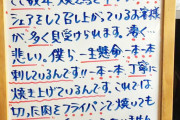 シェアをして召し上がっているお客様
が多く見受けられます。凄く…
悲しい。僕ら一生懸命一本一本
刺しているんです!!一本一本丁寧に
焼き上げているんです。これでは
切った肉をフライパンで焼いても